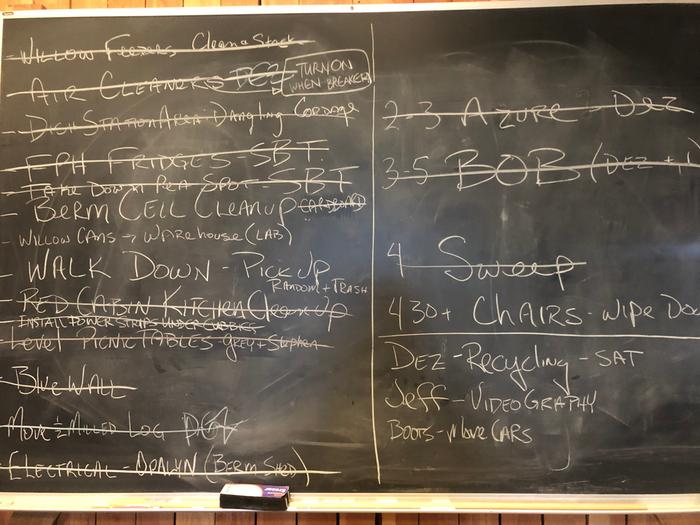 - Willow Feezers Clean & Stack
- Air Cleaners DEZ
TURN ON
WHEN BREAKER
- Dish Station Area Dangling Cordage
- FPH FRIDGES - SBT
- Take Down Pea Spot - SBT
- BERM CELL CLEANUP CARDBOARD
- WILLOW CANS → WAREHOUSE (LAB)
- WALK DOWN - PICK UP
RANDOM + TRASH
- RED CABIN KITCHEN Clean up
- INSTALL POWER STRIPS UNDER CUBBIES
- Level PICNIC TABLES - Grey + Stephen
- Blue WALL
- Move ½ Milled LOG DEZ
- ELECTRICAL - (BERM SHED)
2-3 AZURE - DEZ
3-5 BOB (DEZ + 1)
4 Sweep
430+ CHAIRS - WIPE Do
DEZ - Recycling - SAT
Jeff - VIDEOGRAPHY
BOOTS - Move CARS